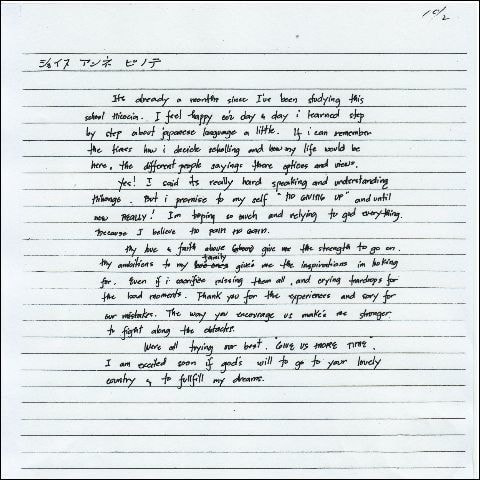 10/2
ジョイス アンネ ビノテ
Its already a month since I've been studying this
school Hiroain. I feel happy coz day & day i learned step
by step about japanese language a little. If i can remember
the times how i decide scholling and how my life would be
here, the different people sayings there options and views.
Yes! I said its really hard speaking and understanding
nihongo. But i promise to my self "NO GIVING UP" and until
now REALLY! Im hoping so much and relying to god everything.
Because I believe no pain no gain.
My love & faith above give me the strength to go on.
My ambitions to my family gives me the inspirations in looking
for. Even if i sacrifice missing them all, and crying teardrops for
the loud moments. Thank you for the experiences and sory for
our mistakes. The way you encourage us make's me stronger
to fight along the obtacles.
Were all trying our best. "GIVE US MORE TIME.
I am excited soon if god's will to go to your lovely
country & to fullfill my dreams.